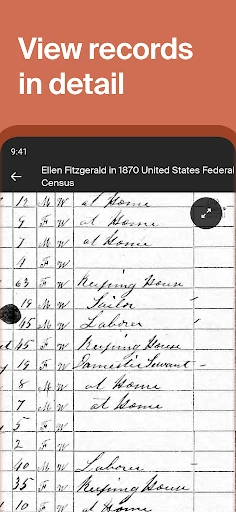 View records
in detail
9:41
Ellen Fitzgerald in 1870 United States Federal
Census
12 M W at Home
9 F W at Home
7 M W at Home
4 F W
63 F W Keeping House
19 M W Sailor
45 M W Laborer
45 F W Keeping House
19 F W Domestic Servant
8 M W at Home
7 M W at Home
5 F W
2 F W
40 M W Laborer
35 F W Keeping House
10 F at Home